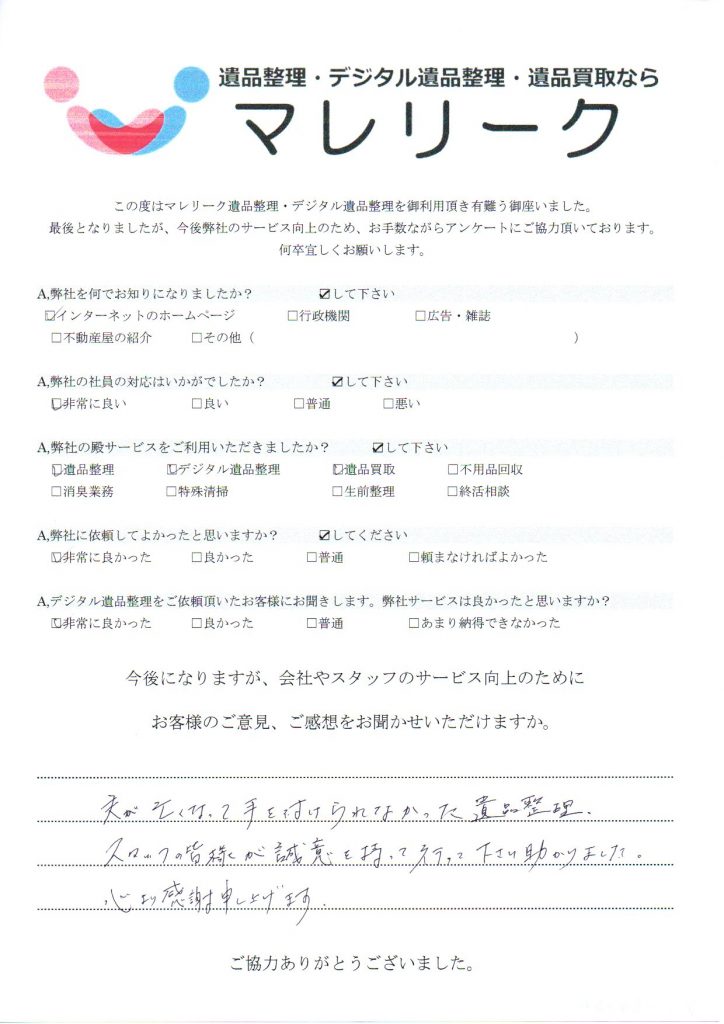 遺品整理・デジタル遺品整理・遺品買取なら
マレリーク
この度はマレリーク遺品整理・デジタル遺品整理を御利用頂き有難う御座いました。
最後となりましたが、今後弊社のサービス向上のため、お手数ながらアンケートにご協力頂いております。
何卒宜しくお願いします。
A,弊社を何でお知りになりましたか? ☑して下さい
☑インターネットのホームページ □行政機関 □広告・雑誌
□不動産屋の紹介 □その他（ ）
A,弊社の社員の対応はいかがでしたか? ☑して下さい
☑非常に良い □良い □普通 □悪い
A,弊社の殿サービスをご利用いただきましたか? ☑して下さい
☑遺品整理 ☑デジタル遺品整理 ☑遺品買取 □不用品回収
□消臭業務 □特殊清掃 □生前整理 □終活相談
A,弊社に依頼してよかったと思いますか? ☑してください
☑非常に良かった □良かった □普通 □頼まなければよかった
A,デジタル遺品整理をご依頼頂いたお客様にお聞きします。弊社サービスは良かったと思いますか?
☑非常に良かった □良かった □普通 □あまり納得できなかった
今後になりますが、会社やスタッフのサービス向上のために
お客様のご意見、ご感想をお聞かせいただけますか。
夫が亡くなって手を付けられなかった遺品整理、
スタッフの皆様が誠意を持って行って下さり助かりました。
心より感謝申し上げます。
ご協力ありがとうございました。